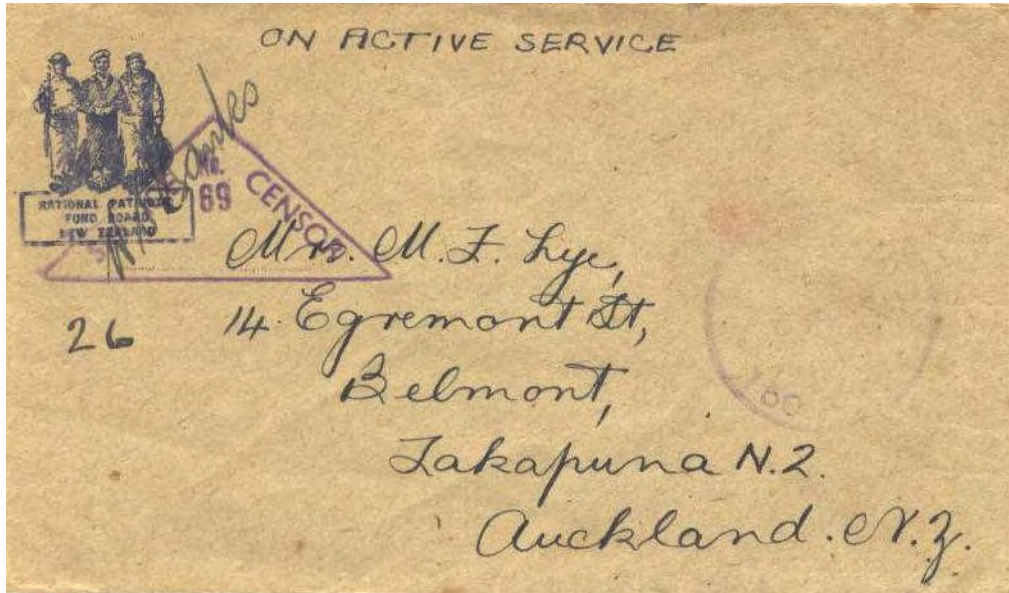 ON ACTIVE SERVICE
NATIONAL PATRIOTIC
FUND BOARD
NEW ZEALAND
No.
69
CENSOR
26
Mrs. M. F. Lye,
14. Egremont St,
Belmont,
Takapuna N.2.
Auckland. N.Z.